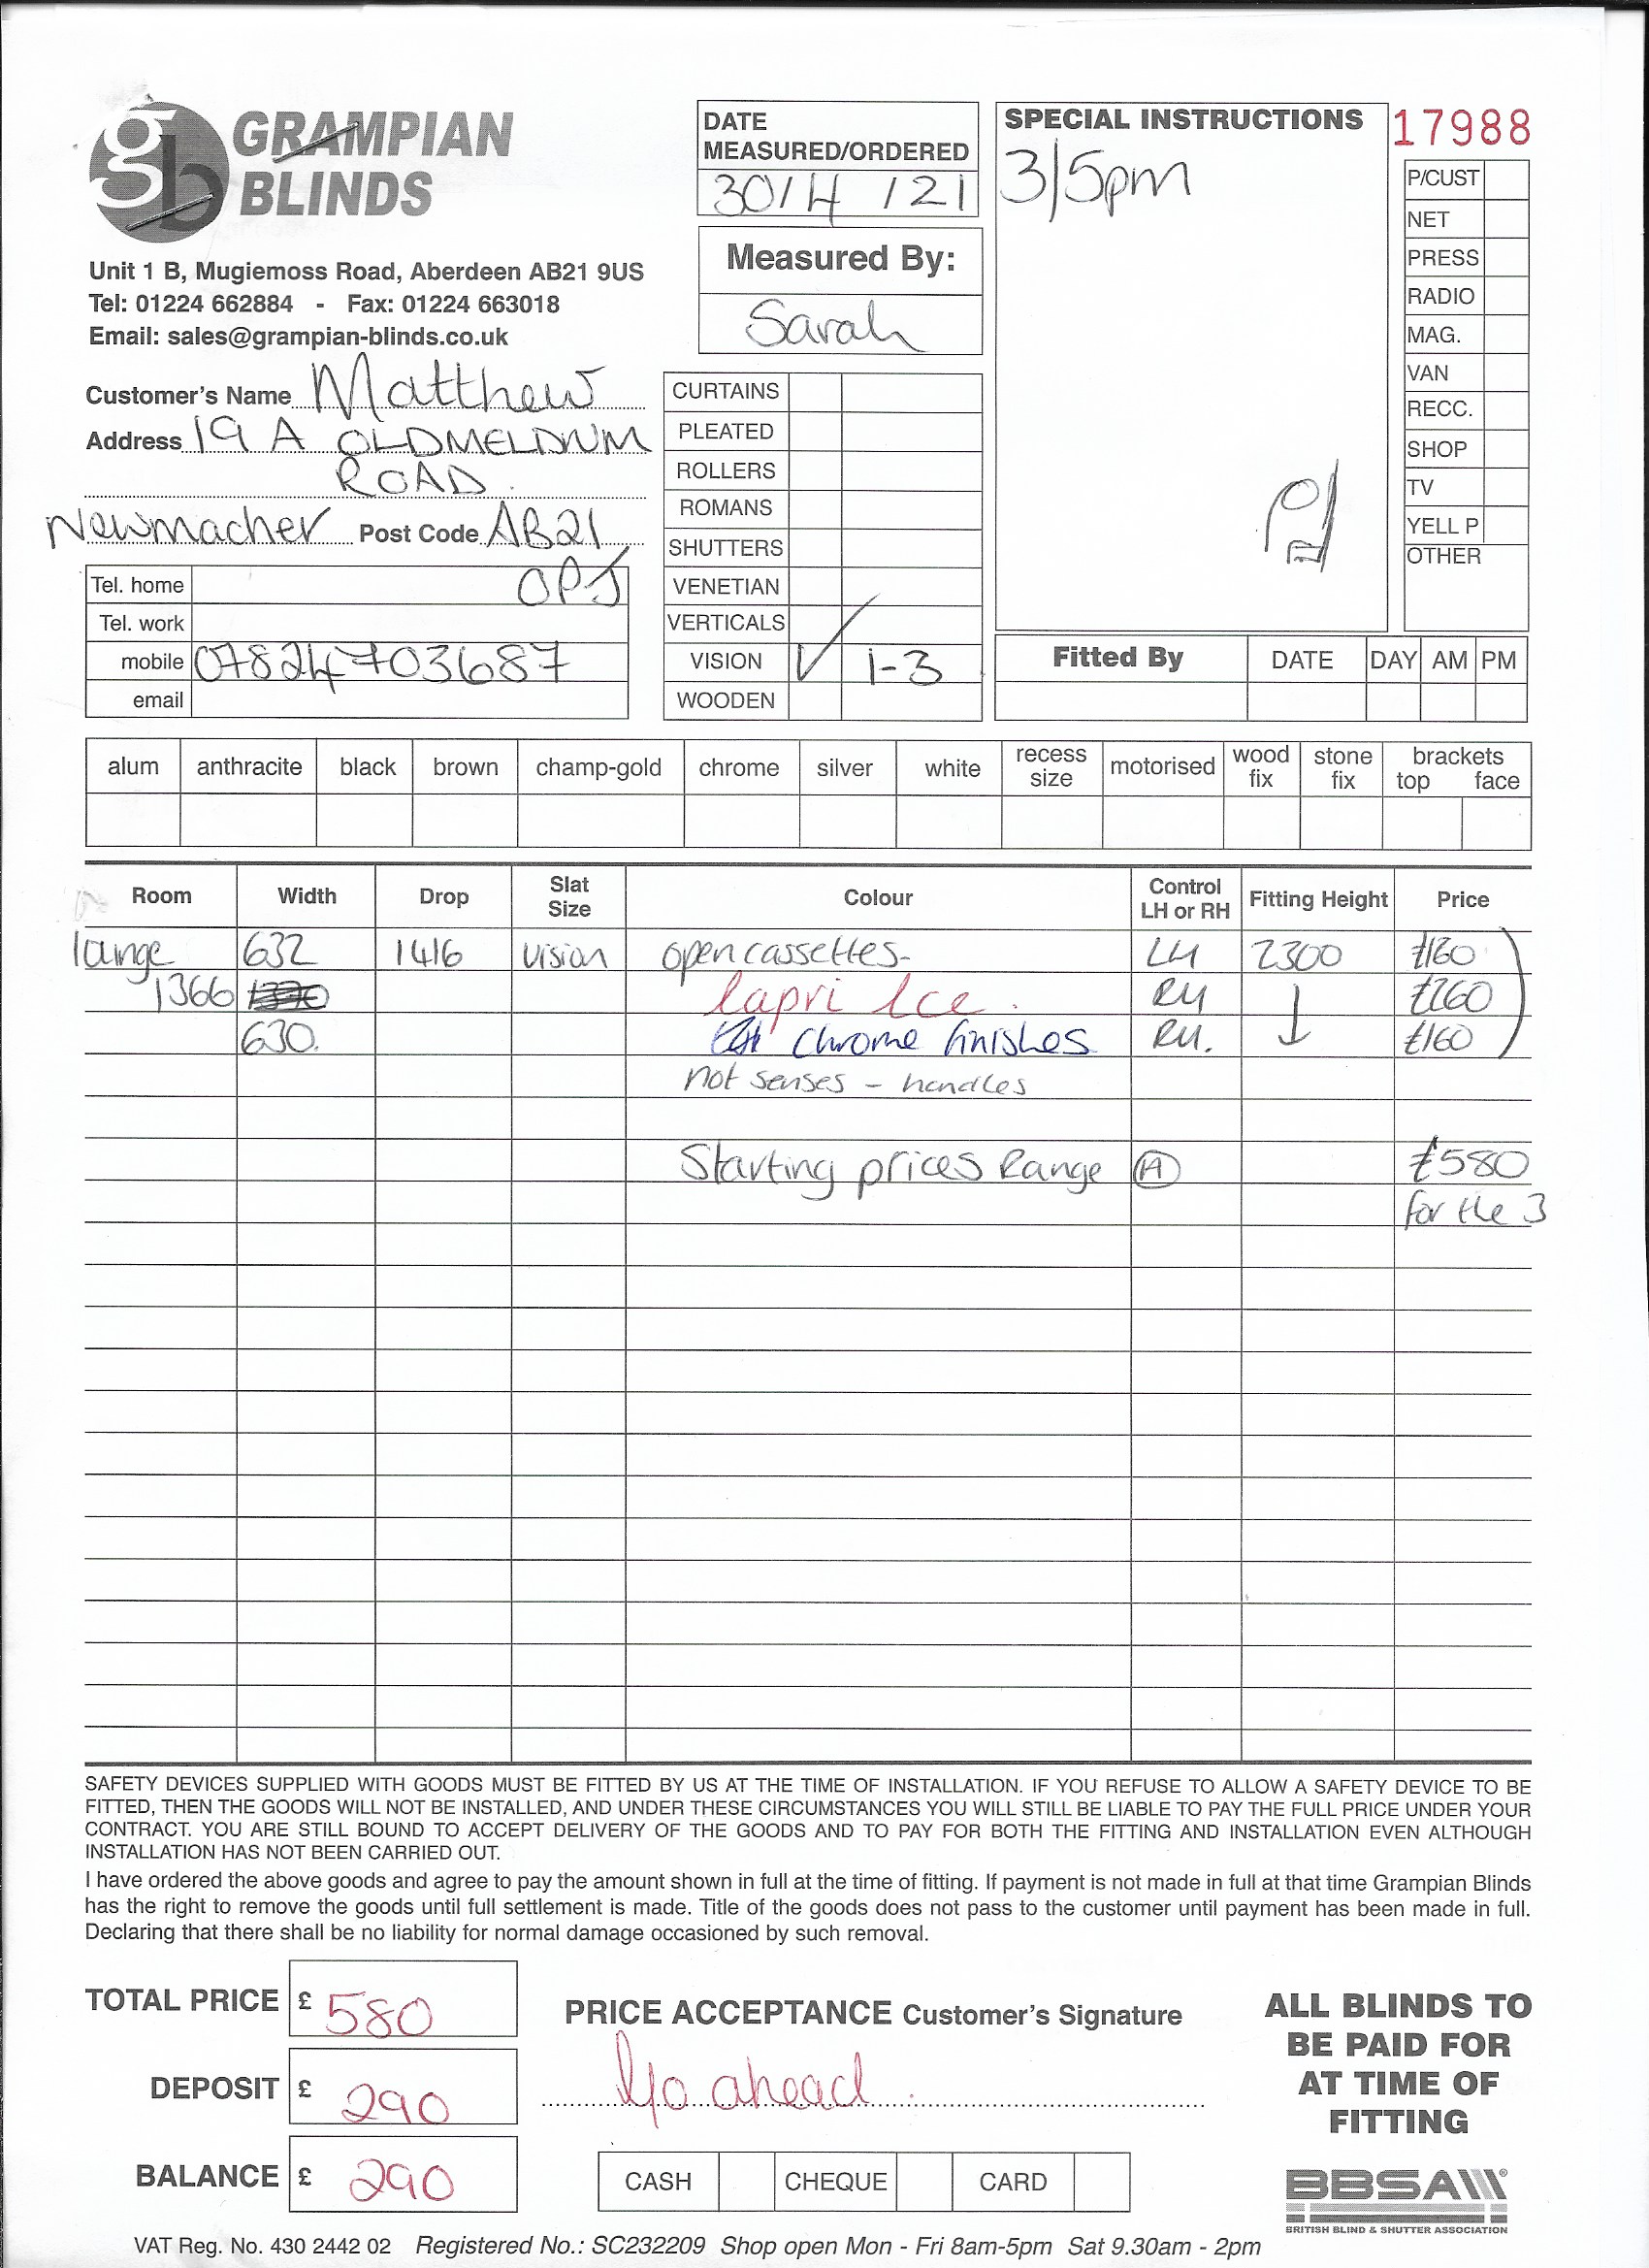 gb GRAMPIAN
BLINDS
Unit 1 B, Mugiemoss Road, Aberdeen AB21 9US
Tel: 01224 662884 - Fax: 01224 663018
Email: sales@grampian-blinds.co.uk
DATE
MEASURED/ORDERED
30/4/21
Measured By:
Sarah
SPECIAL INSTRUCTIONS
3/5pm
17988
P/CUST
NET
PRESS
RADIO
MAG.
VAN
RECC.
SHOP
TV
YELL P
OTHER
Customer's Name Matthew
Address 19 A OLDMELDRUM
ROAD
Newmacher Post Code AB21
0PJ
Tel. home
Tel. work
mobile 07824703687
email
CURTAINS
PLEATED
ROLLERS
ROMANS
SHUTTERS
VENETIAN
VERTICALS
VISION ✓ 1-3
WOODEN
Fitted By DATE DAY AM PM
alum anthracite black brown champ-gold chrome silver white recess size motorised wood fix stone fix brackets top face
Room Width Drop Slat Size Colour Control LH or RH Fitting Height Price
lounge 632 1416 vision open cassettes- LH 2300 £160
1366 Capri Ice. RH £260
630. Chrome finishes RH. £160
not senses - handles
Starting prices Range A £580
for the 3
SAFETY DEVICES SUPPLIED WITH GOODS MUST BE FITTED BY US AT THE TIME OF INSTALLATION. IF YOU REFUSE TO ALLOW A SAFETY DEVICE TO BE
FITTED, THEN THE GOODS WILL NOT BE INSTALLED, AND UNDER THESE CIRCUMSTANCES YOU WILL STILL BE LIABLE TO PAY THE FULL PRICE UNDER YOUR
CONTRACT. YOU ARE STILL BOUND TO ACCEPT DELIVERY OF THE GOODS AND TO PAY FOR BOTH THE FITTING AND INSTALLATION EVEN ALTHOUGH
INSTALLATION HAS NOT BEEN CARRIED OUT.
I have ordered the above goods and agree to pay the amount shown in full at the time of fitting. If payment is not made in full at that time Grampian Blinds
has the right to remove the goods until full settlement is made. Title of the goods does not pass to the customer until payment has been made in full.
Declaring that there shall be no liability for normal damage occasioned by such removal.
TOTAL PRICE £ 580
DEPOSIT £ 290
BALANCE £ 290
PRICE ACCEPTANCE Customer's Signature
Go ahead.
CASH CHEQUE CARD
ALL BLINDS TO
BE PAID FOR
AT TIME OF
FITTING
BBSA
BRITISH BLIND & SHUTTER ASSOCIATION
VAT Reg. No. 430 2442 02 Registered No.: SC232209 Shop open Mon - Fri 8am-5pm Sat 9.30am - 2pm